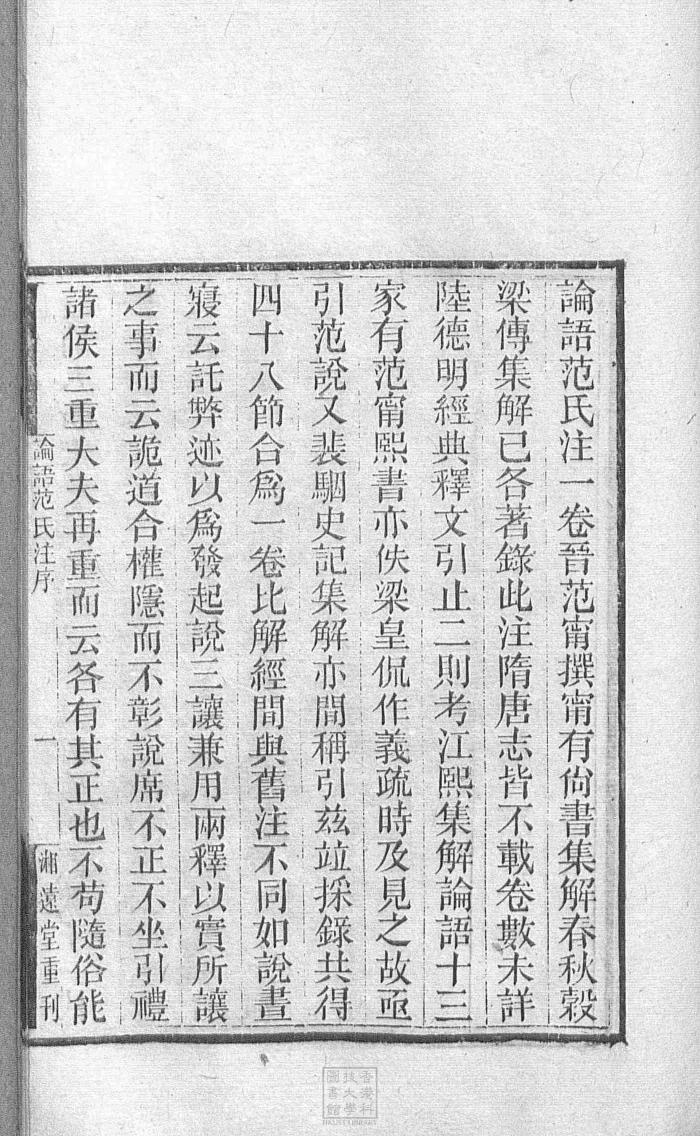 論語范氏注一卷晉范甯撰甯有尙書集解春秋穀
梁傳集解已各著錄此注隋唐志皆不載卷數未詳
陸德明經典釋文引止二則考江熙集解論語十三
家有范甯熙書亦佚梁皇侃作義疏時及見之故亟
引范說又裴駰史記集解亦間稱引兹竝採錄共得
四十八節合爲一卷比解經間與舊注不同如說晝
寢云託弊迹以爲發起說三讓兼用兩釋以實所讓
之事而云詭道合權隱而不彰說席不正不坐引禮
諸侯三重大夫再重而云各有其正也不苟隨俗能
論語范氏注序
一
湘遠堂重刊
香港科
技大學
圖書館
HKUST LIBRARY